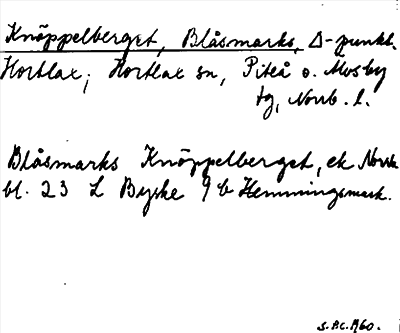 Knöppelberget, Blåsmarks, Δ-punkt.
Hortlax; Hortlax sn, Piteå o. Älvsby
tg, Norrb. l.
Blåsmarks Knöppelberget, ek Norrb
bl. 23 L Byske 9 b Hemmingsmark.
S.P.C. 1960.